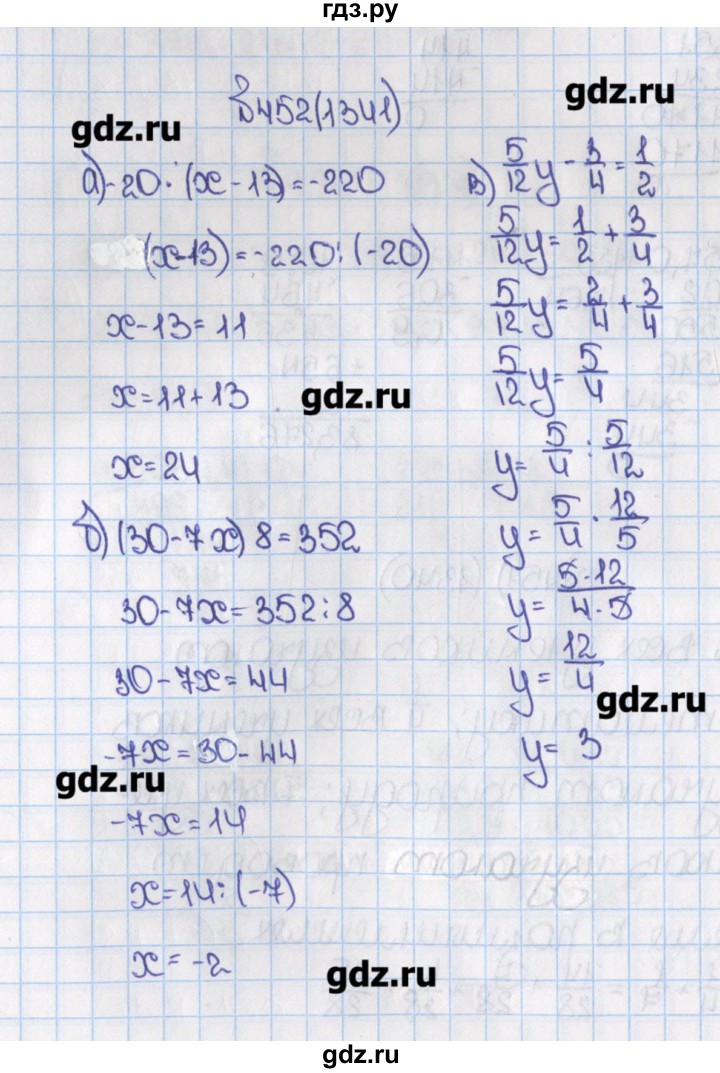 гдз.ру
№452(1341)
gdz.ru
gdz.ru
а) -20 · (x - 13) = -220
(x-13) = -220 : (-20)
x - 13 = 11
x = 11 + 13
gdz.ru
x = 24
б) (30 - 7x) 8 = 352
30 - 7x = 352 : 8
30 - 7x = 44
-7x = 30 - 44
gdz.ru
-7x = 14
x = 14 : (-7)
x = -2
в) 5/12 y - 3/4 = 1/2
5/12 y = 1/2 + 3/4
5/12 y = 2/4 + 3/4
5/12 y = 5/4
y = 5/4 : 5/12
y = 5/4 · 12/5
y = 5·12/4·5
y = 12/4
gdz.ru
y = 3
gdz.ru
gdz.ru